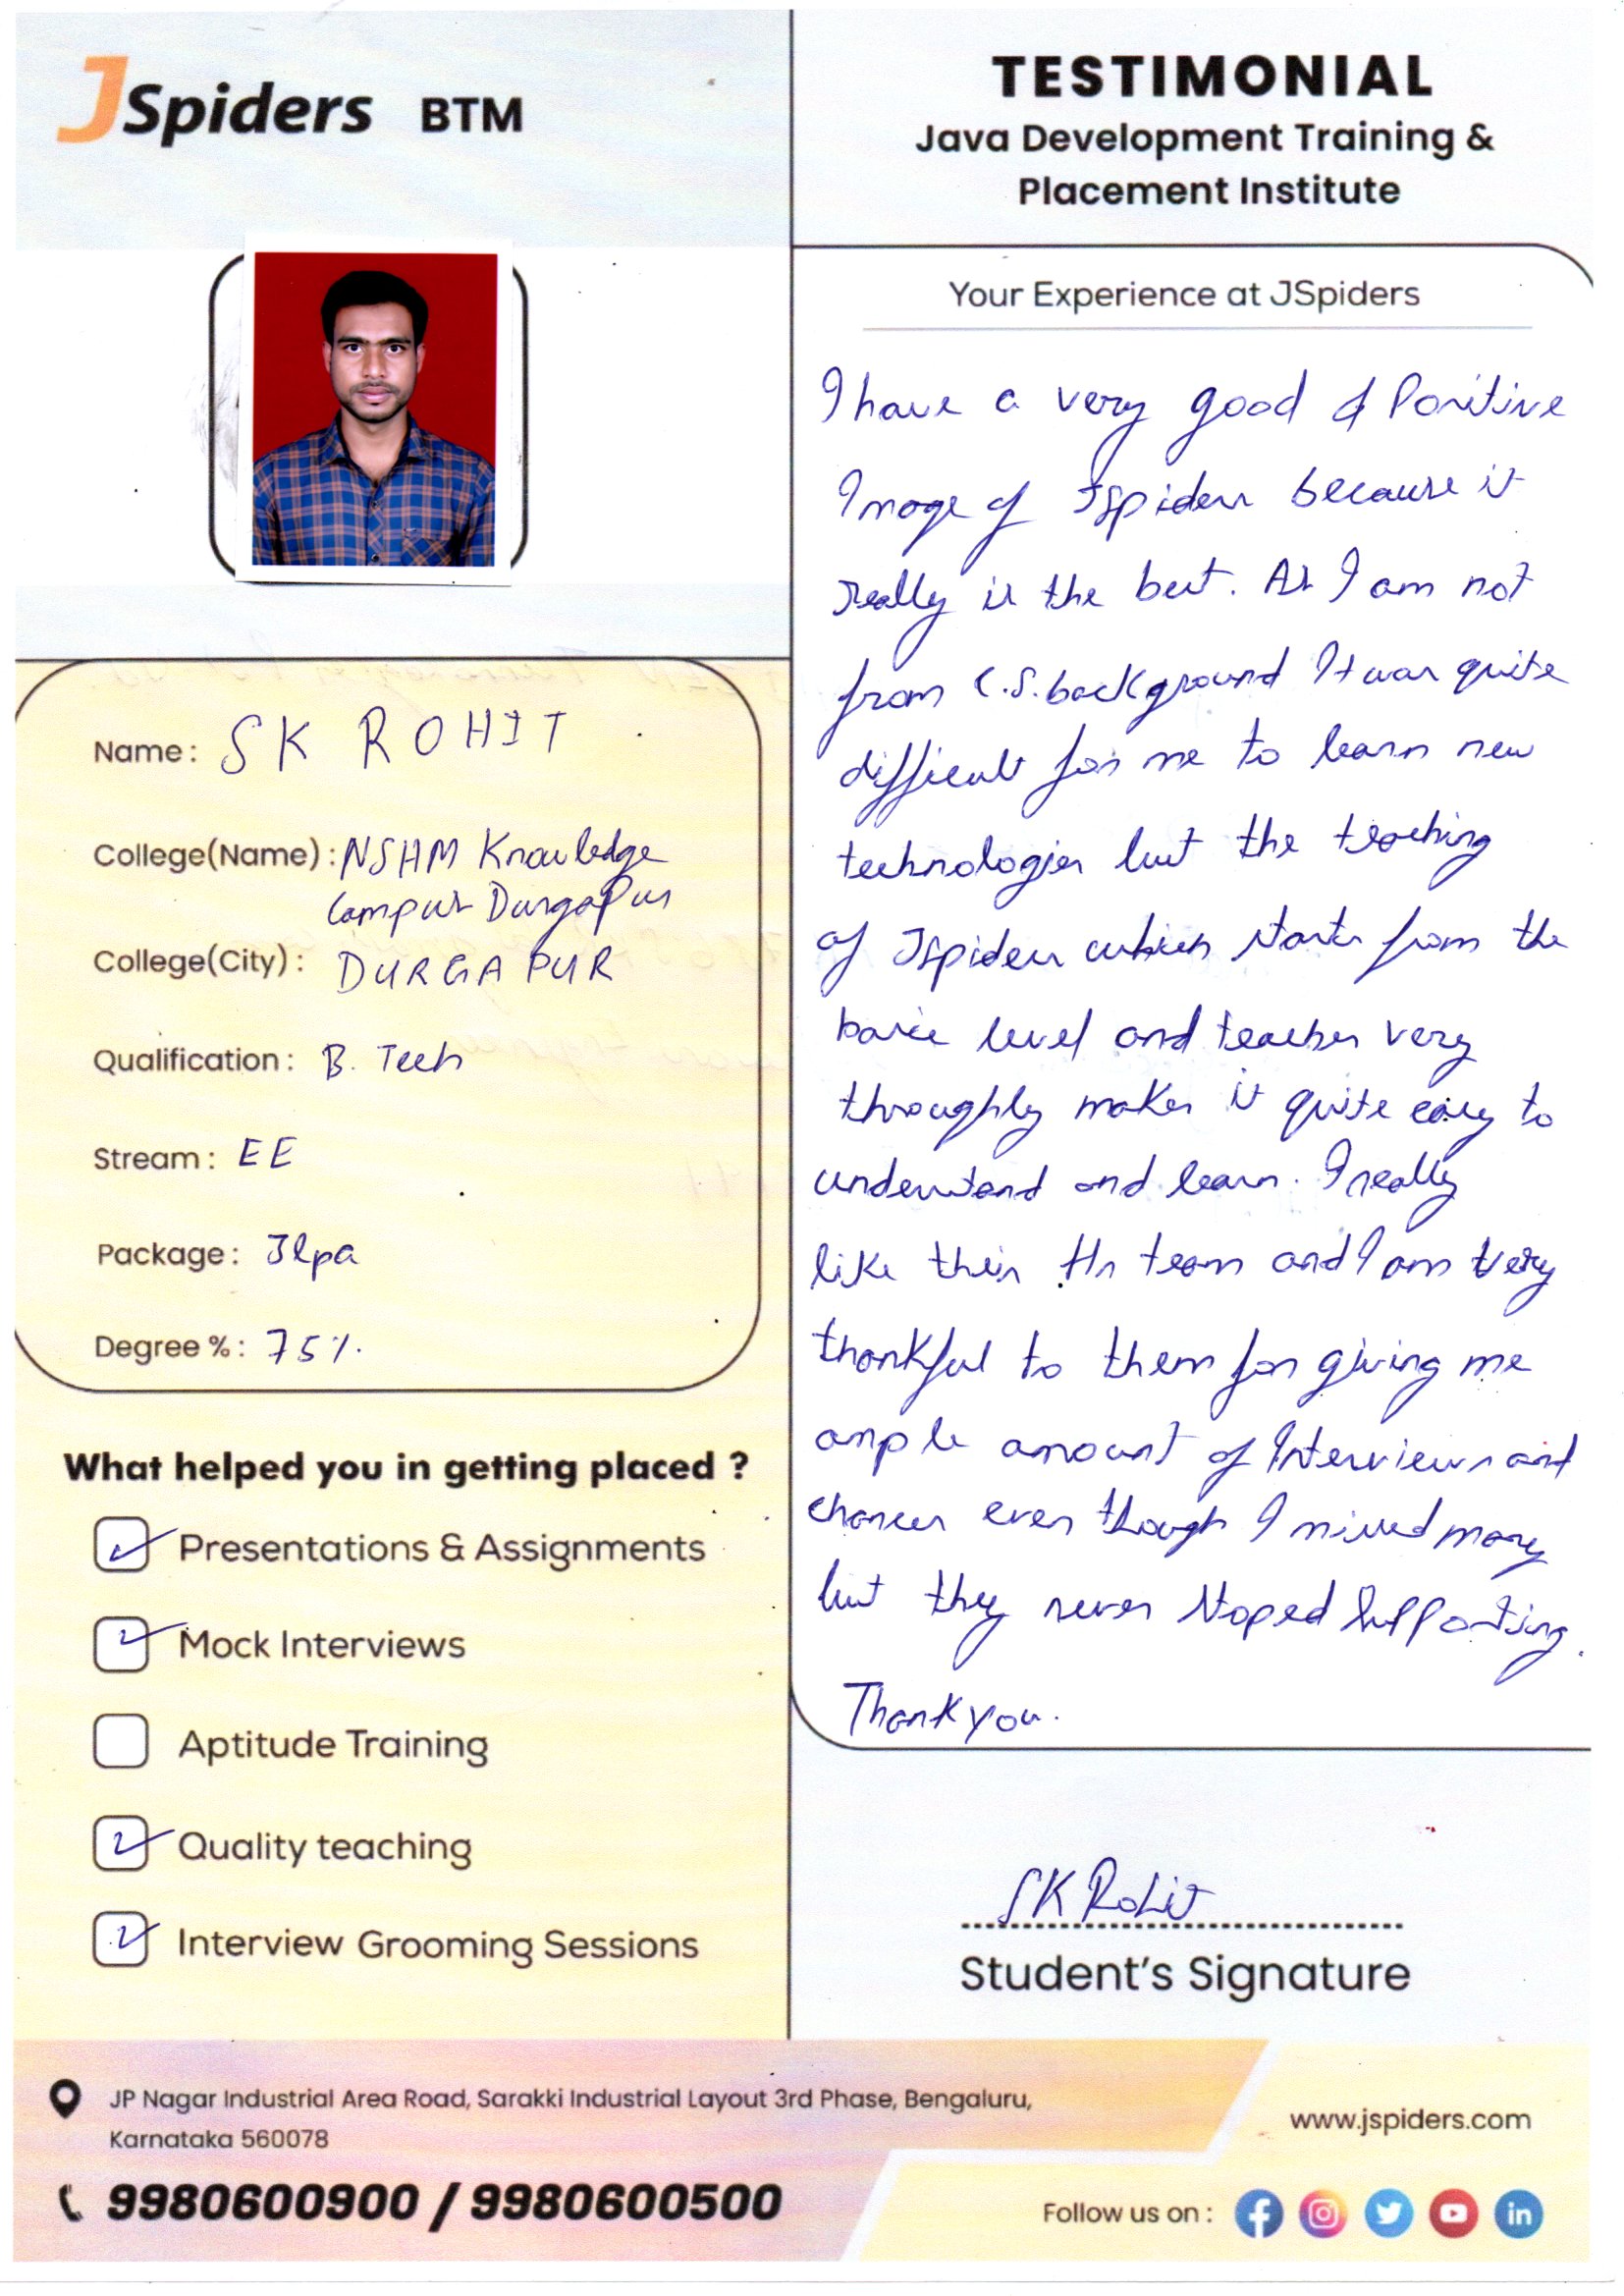 JSpiders BTM
TESTIMONIAL
Java Development Training &
Placement Institute
Name : SK ROHIT
College(Name) : NSHM Knowledge
Campus Durgapur
College(City) : DURGAPUR
Qualification : B. Tech
Stream : EE
Package : 3lpa
Degree % : 75%.
What helped you in getting placed ?
Presentations & Assignments
Mock Interviews
Aptitude Training
Quality teaching
Interview Grooming Sessions
Your Experience at JSpiders
I have a very good & Positive
Image of Jspiders because it
really is the best. As I am not
from C.S. background It was quite
difficult for me to learn new
technologies but the teaching
of Jspiders which starts from the
basic level and teaches very
throughly makes it quite easy to
understand and learn. I really
like their Hr team and I am very
thankful to them for giving me
ample amount of Interviews and
chances even though I missed many
but they never stoped supporting.
Thank you.
SK Rohit
Student's Signature
JP Nagar Industrial Area Road, Sarakki Industrial Layout 3rd Phase, Bengaluru,
Karnataka 560078
9980600900 / 9980600500
www.jspiders.com
Follow us on :